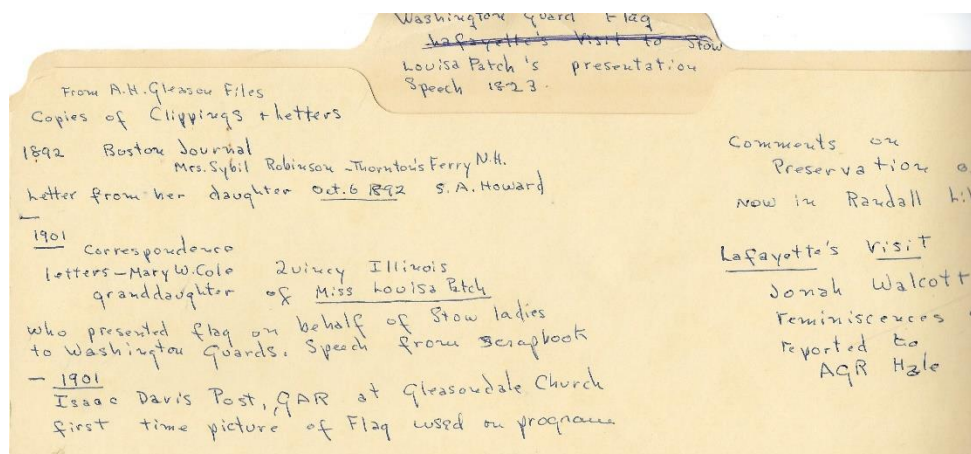 Washington Guard Flag
Lafayette's Visit to Stow
Louisa Patch's presentation
Speech 1823.
From A.H. Gleason Files
Copies of Clippings + Letters
1892 Boston Journal
Mrs. Sybil Robinson - Thornton's Ferry N.H.
Letter from her daughter Oct. 6 1892 S. A. Howard
—
1901
Correspondence
letters - Mary W. Cole Quincy Illinois
granddaughter of Miss Louisa Patch
who presented flag on behalf of Stow ladies
to Washington Guards. Speech from scrapbook
- 1901
Isaac Davis Post, GAR at Gleasondale Church
first time picture of Flag used on program
Comments on
Preservation
Now in Randall
Lafayette's Visit
Jonah Walcott
reminiscences
reported to
AGR Hale